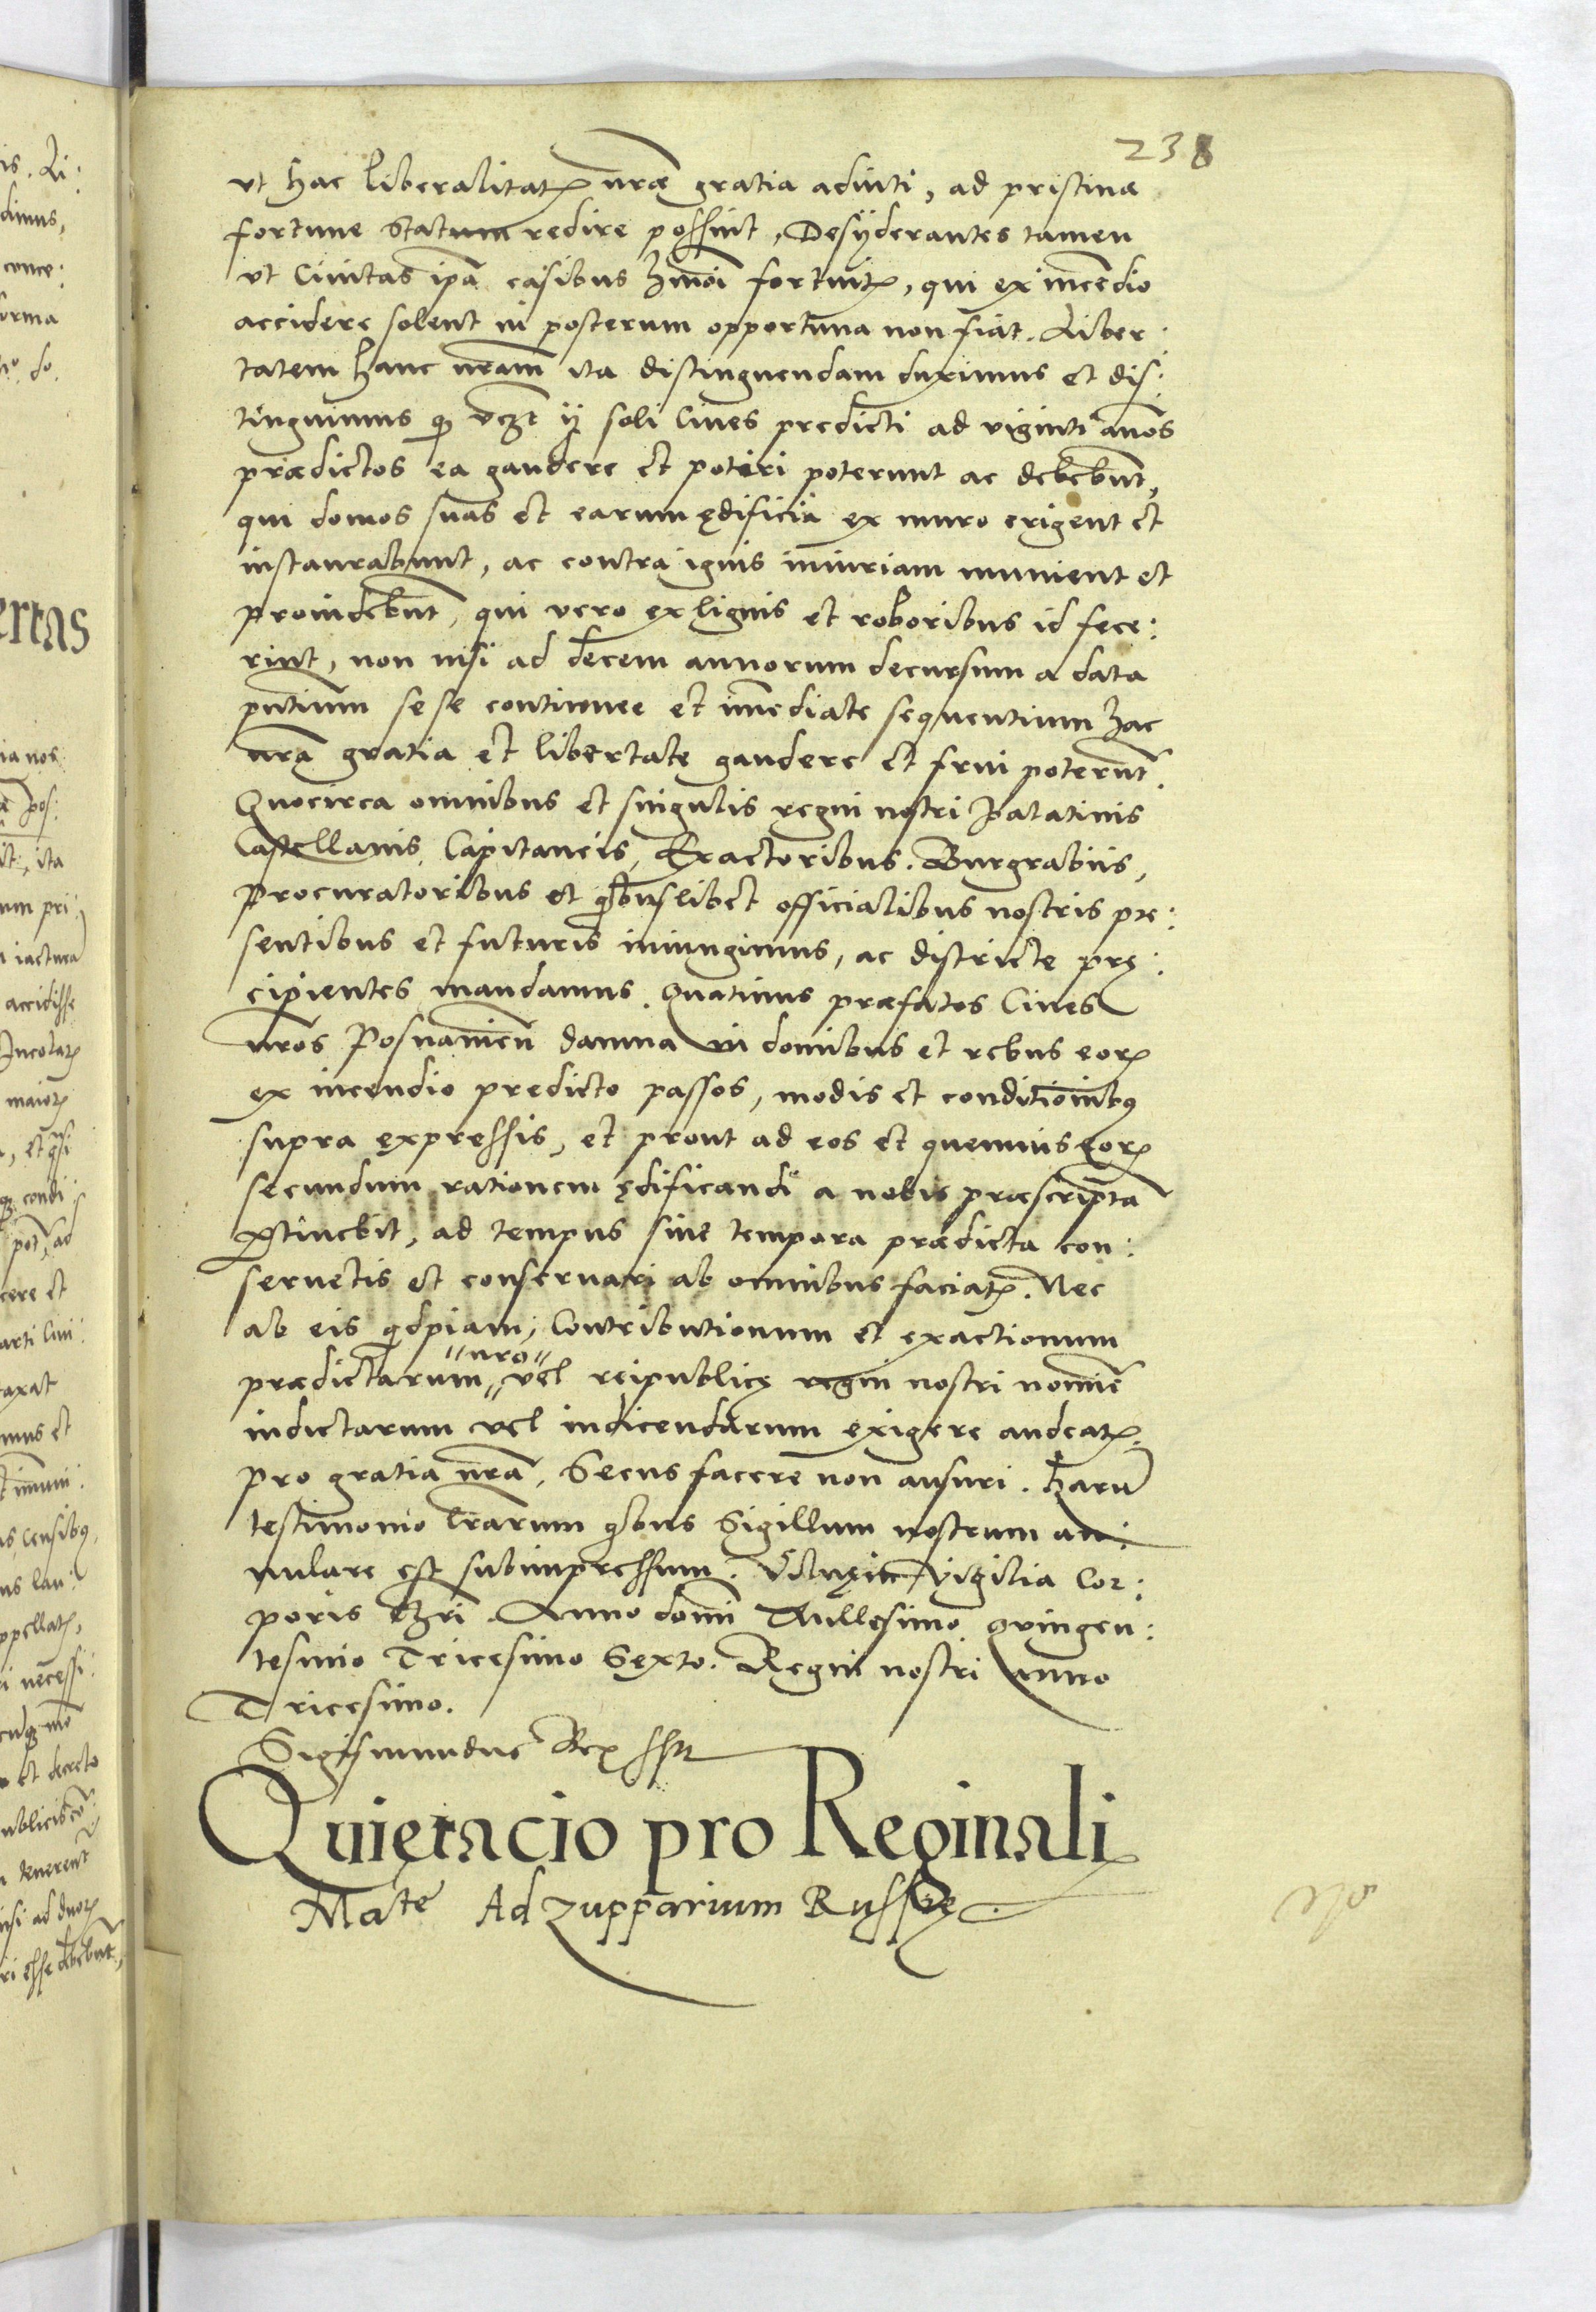 238
ut hac liberalitatis nr̃ae gratia adiuti, ad pristinae
fortune statum redire possint, Desyderantes tamen
ut Civitas ip̃a casibus hm̃oi fortuitis, qui ex incẽdio
accidere solent in posterum opportuna non fiat. Liber:
tatem hanc nr̃am ita distinguendam duximus et dis:
tinguimus q vcz̃t ij soli Cives predicti ad viginti años
prædictos ea gaudere et potiri poterunt ac debebũt,
qui domos suas et earum ędificia ex muro erigent et
instaurabunt, ac contra ignis iniuriam munient et
providebũt, qui vero ex lignis et roboribus id fece:
rint, non nisi ad decem annorum decursum a data
pñtium sese continuee et im̃ediate sequentium hac
nr̃a gratia et libertate gaudere et frui poterunt.
Quocirca omnibus et singulis regni nostri Palatinis
Castellanis, Capitaneis, Exactoribus. Burgrabiis,
Procuratoribus et qbuslibet officialibus nostris præ:
sentibus et futuris iniungimus, ac districte prę:
cipientes mandamus. Quatinus præfatos Cives
nr̃os Posnanieñ damna in domibus et rebus eorꝝ
ex incendio predicto passos, modis et conditioñibꝰ
supra expressis, et prout ad eos et quemvis eorꝝ
secundum rationem ędificandi a nobis præscriptã
ꝑtinebit, ad tempus sive tempora prædicta con:
servetis et conservari ab omnibus faciatꝭ. Nec
ab eis qdpiam, Contributionum et exactionum
"nro"
prædictarum " vel reipublicę regni nostri nomiẽ
indictarum vel indicendarum exigere audeatꝭ.
pro gratia nr̃a, Secus facere non ausuri. harũ
testimonio lr̃arum qbus Sigillum nostrum an:
nulare est subimpressum. Vilnę in vigilia Cor:
poris Chr̃i. Anno domĩ Millesimo Quingen:
tesimo Tricesimo Sexto. Regni nostri anno
Tricesimo.
Sigismundus Rex sst
Quietacio pro Reginali
Mate Ad zupparium Russię.